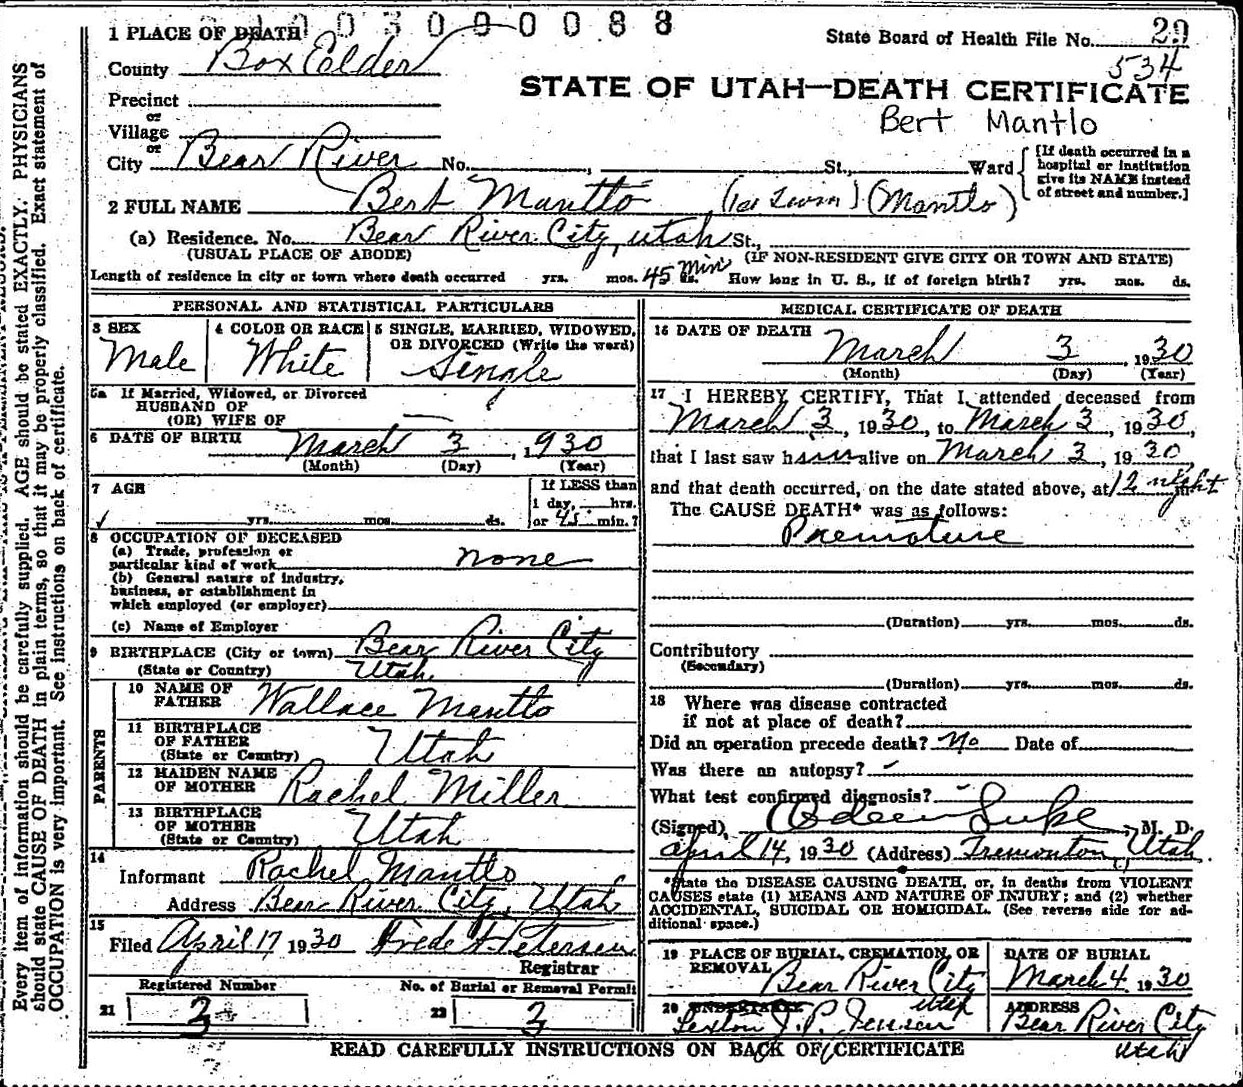 003000088
1 PLACE OF DEATH
State Board of Health File No. 29
534
County Box Elder
STATE OF UTAH—DEATH CERTIFICATE
Precinct
or
Village
or
Bert Mantlo
City Bear River No. , St., Ward
[If death occurred in a
hospital or institution
give its NAME instead
of street and number.]
2 FULL NAME Bert Mantlo (1st Twin) (Mantlo)
(a) Residence. No. Bear River City, Utah St.,
(USUAL PLACE OF ABODE) (IF NON-RESIDENT GIVE CITY OR TOWN AND STATE)
Length of residence in city or town where death occurred yrs. mos. 45 min ds. How long in U. S., if of foreign birth? yrs. mos. ds.
PERSONAL AND STATISTICAL PARTICULARS
3 SEX Male
4 COLOR OR RACE White
5 SINGLE, MARRIED, WIDOWED,
OR DIVORCED (Write the word)
Single
5a If Married, Widowed, or Divorced
HUSBAND OF
(OR) WIFE OF —
6 DATE OF BIRTH March 3, 1930
(Month) (Day) (Year)
7 AGE
yrs. mos. ds.
If LESS than
1 day, hrs.
or 45 min.?
8 OCCUPATION OF DECEASED
(a) Trade, profession or
particular kind of work none
(b) General nature of industry,
business, or establishment in
which employed (or employer)
(c) Name of Employer
9 BIRTHPLACE (City or town) Bear River City
(State or Country) Utah
PARENTS
10 NAME OF
FATHER Wallace Mantlo
11 BIRTHPLACE
OF FATHER
(State or Country) Utah
12 MAIDEN NAME
OF MOTHER Rachel Miller
13 BIRTHPLACE
OF MOTHER
(State or Country) Utah
14
Informant Rachel Mantlo
Address Bear River City, Utah
15
Filed April 17 1930 Frede F. Petersen
Registrar
Registered Number
21 3
No. of Burial or Removal Permit
22 3
MEDICAL CERTIFICATE OF DEATH
16 DATE OF DEATH
March 3 1930
(Month) (Day) (Year)
17 I HEREBY CERTIFY, That I attended deceased from
March 3, 1930, to March 3, 1930,
that I last saw him alive on March 3, 1930
and that death occurred, on the date stated above, at 12 night m
The CAUSE DEATH* was as follows:
Premature
(Duration) yrs. mos. ds.
Contributory
(Secondary)
(Duration) yrs. mos. ds.
18 Where was disease contracted
if not at place of death?
Did an operation precede death? No Date of
Was there an autopsy? -
What test confirmed diagnosis? -
(Signed) Odeen Luke, M. D.
April 14, 1930 (Address) Tremonton, Utah.
*State the DISEASE CAUSING DEATH, or, in deaths from VIOLENT
CAUSES state (1) MEANS AND NATURE OF INJURY; and (2) whether
ACCIDENTAL, SUICIDAL OR HOMICIDAL. (See reverse side for ad-
ditional space.)
19 PLACE OF BURIAL, CREMATION, OR
REMOVAL Bear River City
Utah
DATE OF BURIAL
March 4 1930
20 UNDERTAKER
Sexton J. P. Jensen
ADDRESS
Bear River City
Utah
READ CAREFULLY INSTRUCTIONS ON BACK OF CERTIFICATE
Every item of information should be carefully supplied. AGE should be stated EXACTLY. PHYSICIANS
should state CAUSE OF DEATH in plain terms, so that it may be properly classified. Exact statement of
OCCUPATION is very important. See instructions on back of certificate.